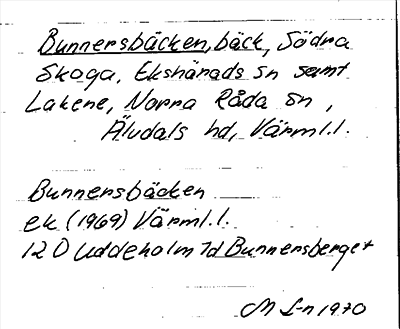 Bunnersbäcken, bäck, Södra
Skoga, Ekshärads sn samt
Lakene, Norra Råda sn,
Älvdals hd, Värml.l.
Bunnersbäcken
ek (1969) Värml.l.
12 D Uddeholm 7d Bunnersberget
M L-n 1970